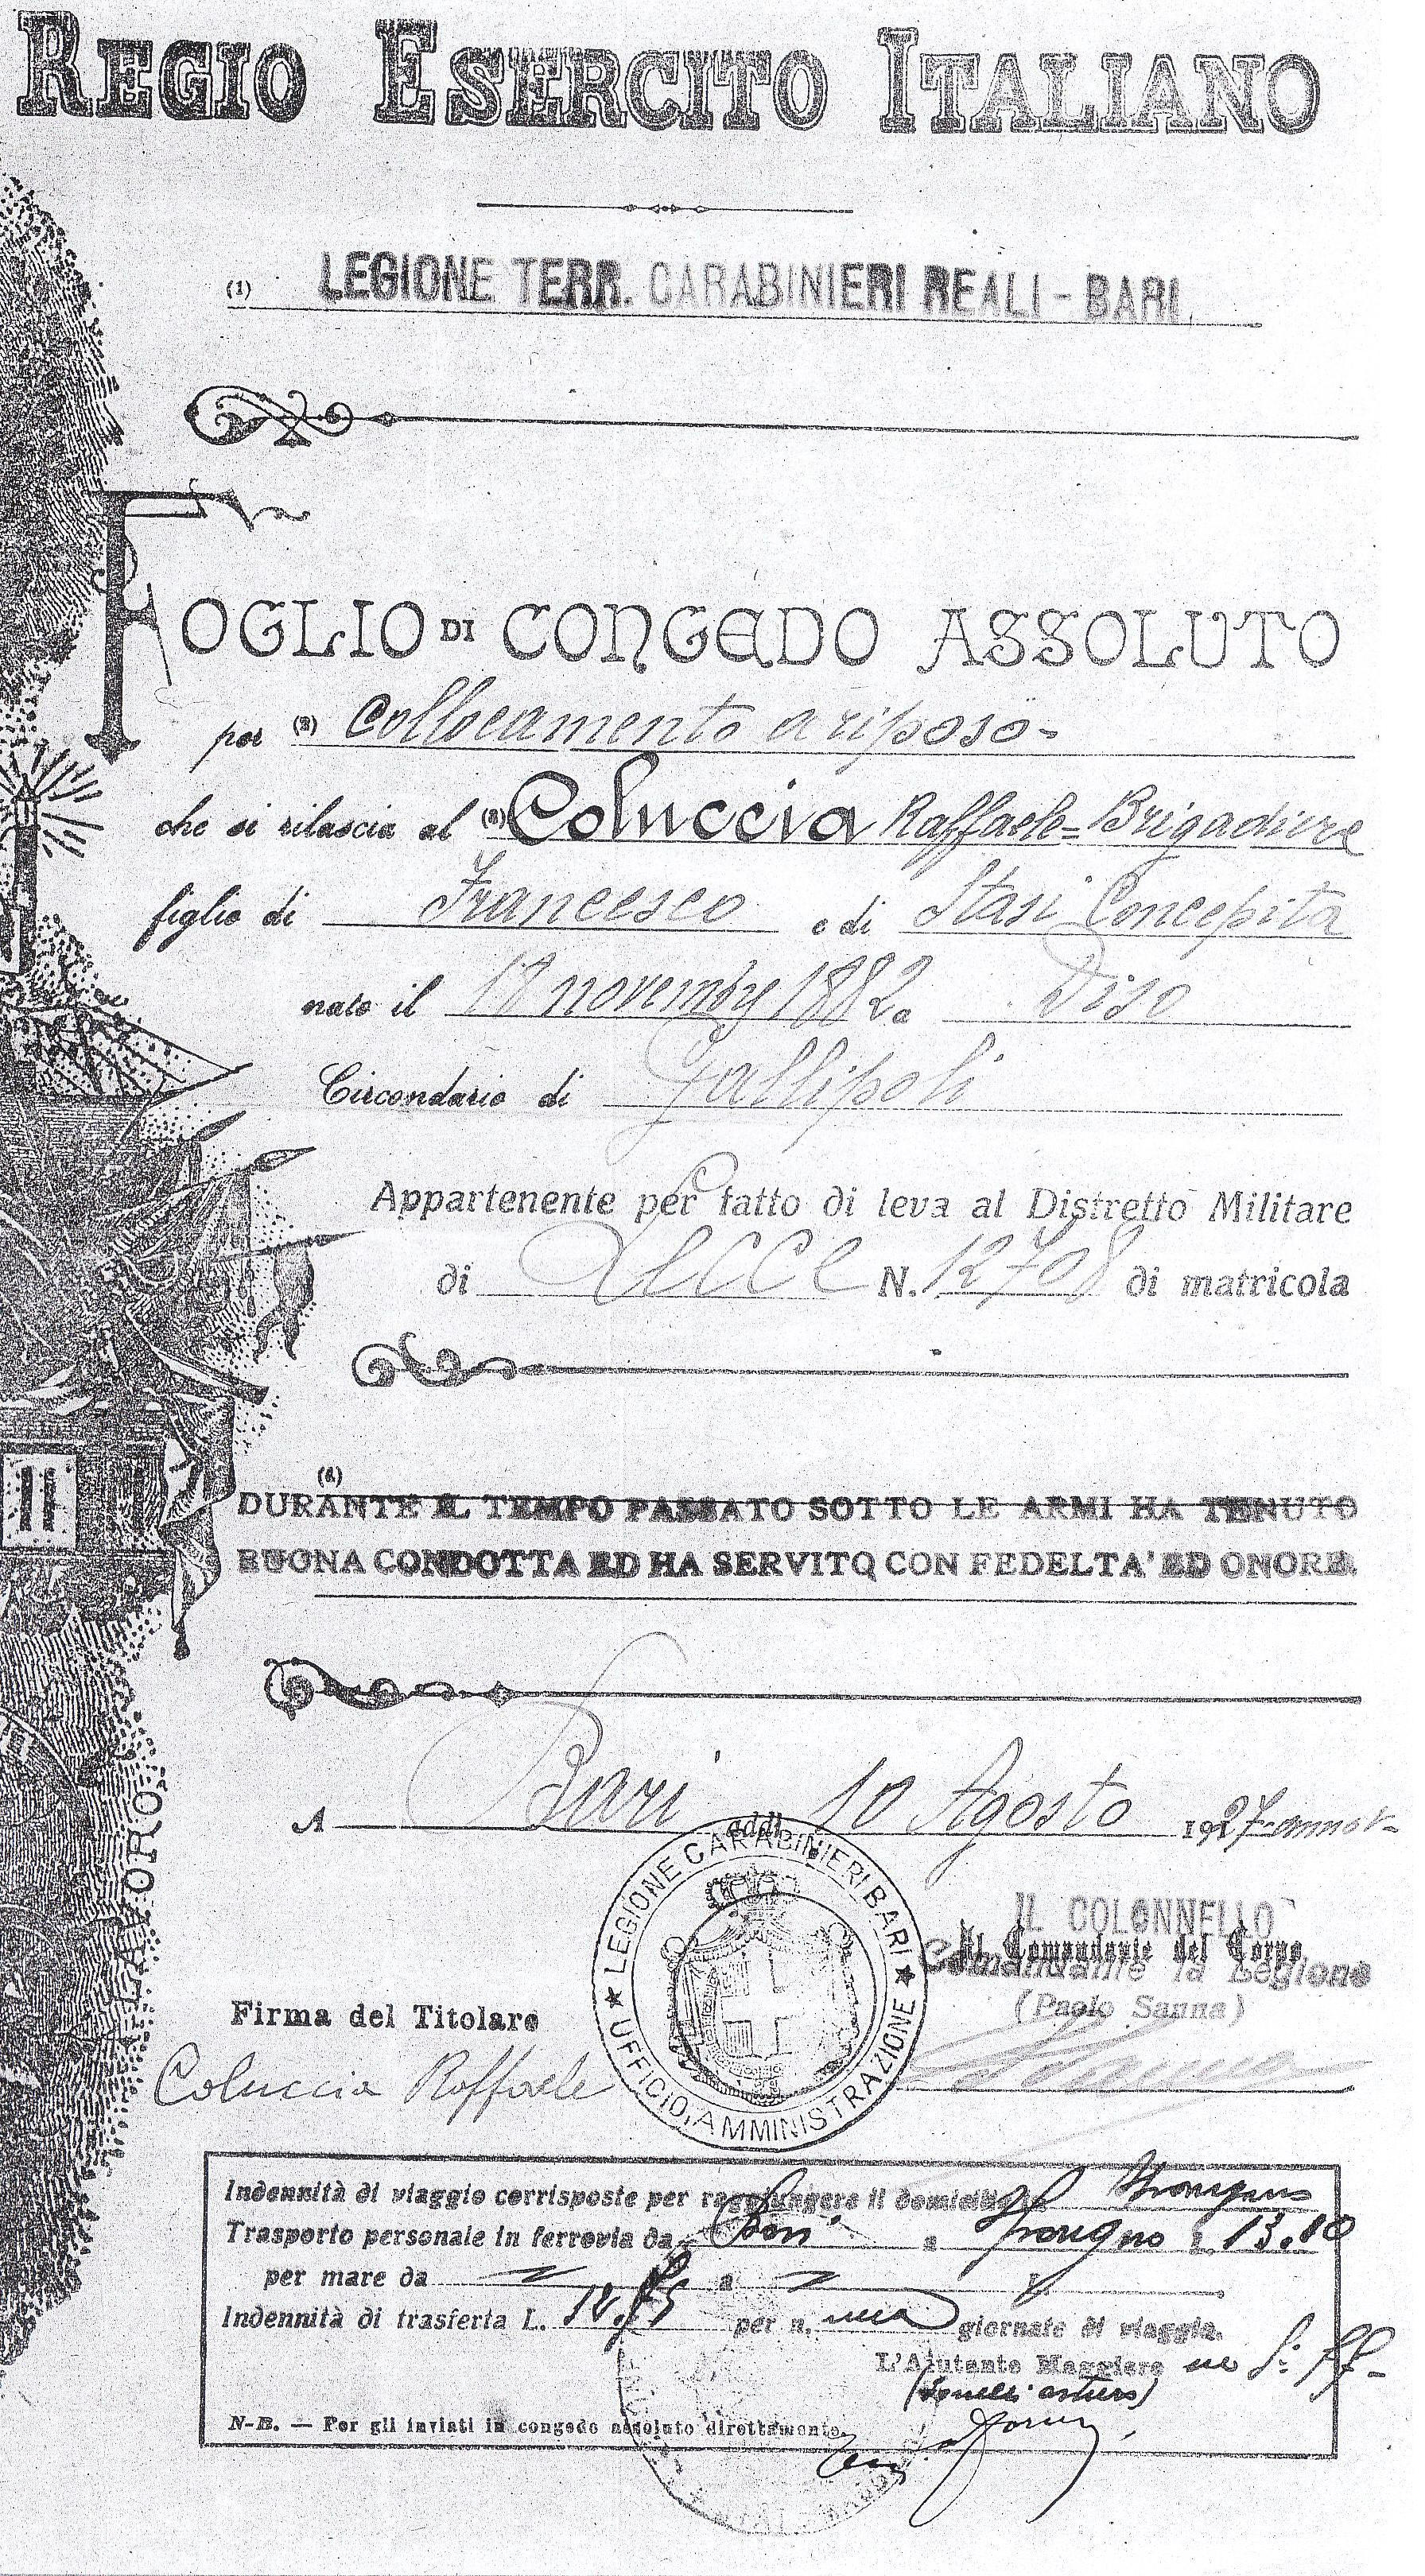 REGIO ESERCITO ITALIANO
(1) LEGIONE TERR. CARABINIERI REALI - BARI
FOGLIO DI CONGEDO ASSOLUTO
per (2) Collocamento a riposo =
che si rilascia al (3) Coluccia Raffaele = Brigadiere
figlio di Francesco e di Stasi Concepita
nato il 18 novembre 1882 a Diso
Circondario di Gallipoli
Appartenente per fatto di leva al Distretto Militare
di Lecce N. 12708 di matricola
(4)
DURANTE IL TEMPO PASSATO SOTTO LE ARMI HA TENUTO
BUONA CONDOTTA ED HA SERVITO CON FEDELTA' ED ONORE
A Bari addì 10 Agosto 1927 - anno V -
LEGIONE CARABINIERI BARI
UFFICIO AMMINISTRAZIONE
IL COLONNELLO
Il Comandante del Corpo
Comandante la Legione
(Paolo Sanna)
Firma del Titolare
Coluccia Raffaele
Indennità di viaggio corrisposte per raggiungere il domicilio
Trasporto personale in ferrovia da Bari a L. 13.80
per mare da a L.
Indennità di trasferta L. per n. una giornate di viaggio.
L'Aiutante Maggiore
N-B. — Per gli inviati in congedo assoluto direttamente.